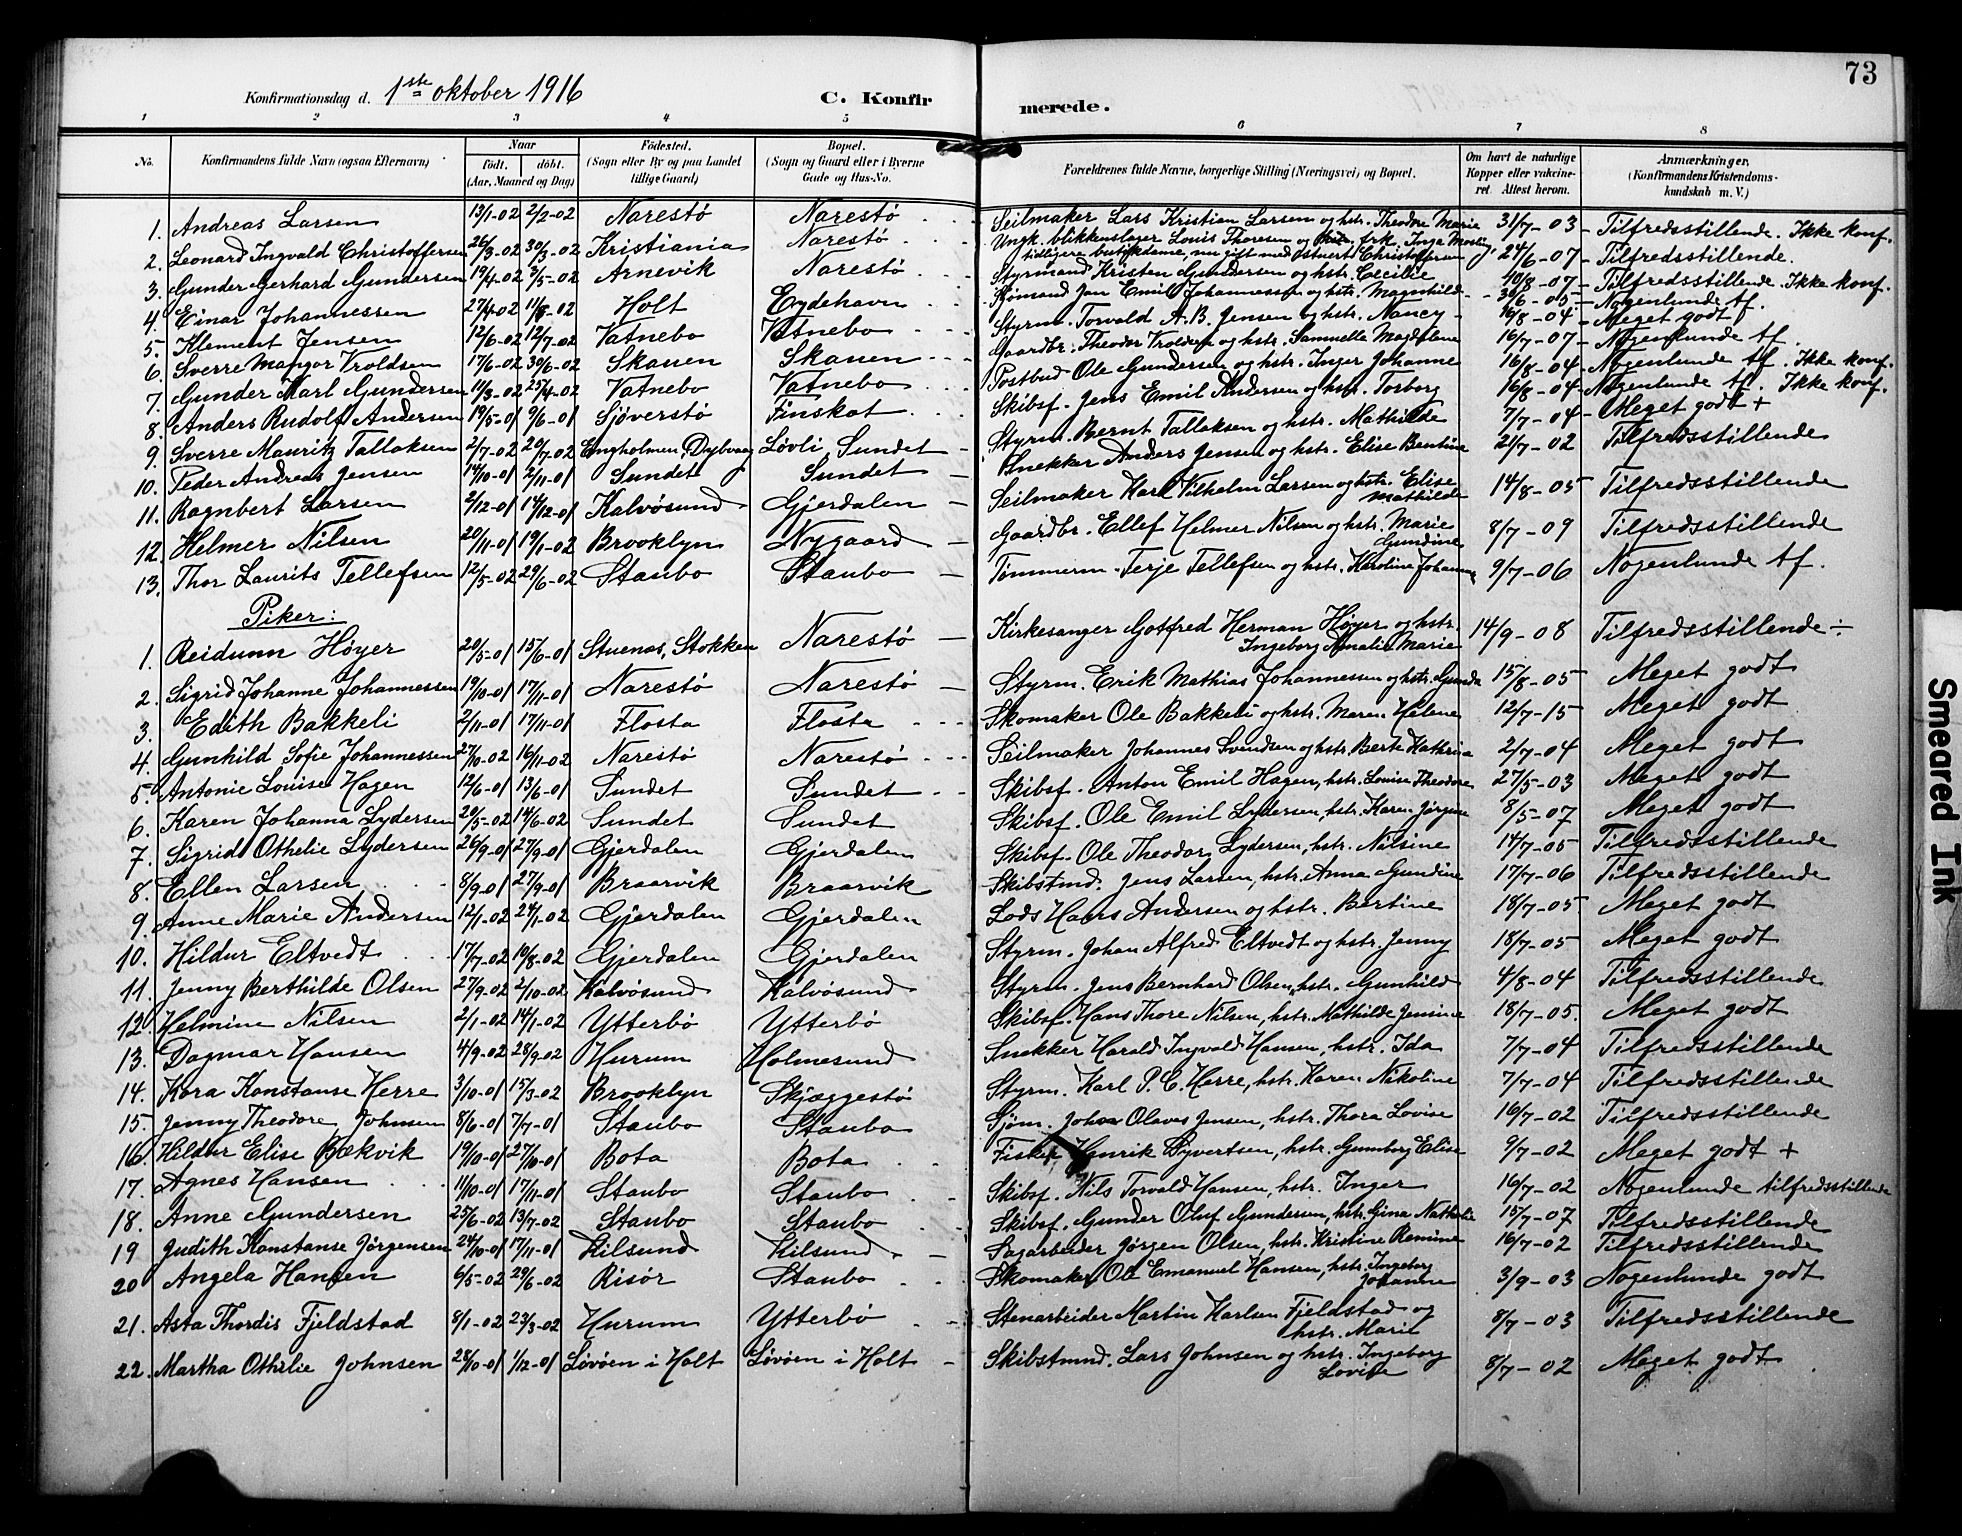 73
Konfirmationsdag d. 1ste oktober 1916
C. Konfirmerede.
1 2 3 4 5 6 7 8
No. Konfirmandens fulde Navn (ogsaa Efternavn) Naar født. døbt. (Aar, Maaned og Dag) Fødested. (Sogn eller By og paa Landet tillige Gaard) Bopæl. (Sogn og Gaard eller i Byerne Gade og Hus-No. Forældrenes fulde Navne, borgerlige Stilling (Næringsvei) og Bopæl. Om havt de naturlige Kopper eller vakcineret. Attest herom. Anmærkninger, (Konfirmandens Kristendomskundskab m. V.)
1. Andreas Larsen 13/1-02 2/2-02 Narestø Narestø Seilmaker Lars Kristian Larsen og hstr. Theodne Marie 31/7-03 Tilfredsstillende. Ikke konf.
2. Leonard Ingvald Christoffersen 26/3-02 30/3-02 Kristiania Narestø Ungk. blikkenslager Louis Thoresen og frk. Inga
tidligere butikdame, nu gift med Christoffersen 24/6-07 Tilfredsstillende.
3. Gunder Gerhard Gundersen 19/4-02 Arnevik Narestø Styrmand Kristen Gundersen og hstr. Cecilie Tilfredsstillende. Ikke konf.
4. Einar Johannessen 27/4-02 11/8-02 Holt Eydehavn Sjømand Jan Emil Johannessen og hstr. Magnhild Nogenlunde tf.
5. Klement Jensen 12/6-02 12/7-02 Vatnebo Vatnebo Styrm. Torvald A. B. Jensen og hstr. Nancy 16/8-04 Meget godt
6. Sverre Mangor Vroldsen 17/6-02 30/6-02 Skauen Skauen Gaardbr. Theodor Vroldsen og hstr. Samuelle Magdalene 16/7-07 Nogenlunde tf.
7. Gunder Karl Gundersen 11/3-02 25/4-02 Vatnebo Vatnebo Postbud Ole Gundersen og hstr. Inger Johanne 16/8-04 Nogenlunde tf. Ikke konf.
8. Anders Rudolf Andersen 19/5-01 9/6-01 Sjøverstø Finskot Skibsf. Jens Emil Andersen og hstr. Torborg 16/8-04 Nogenlunde tf. Ikke konf.
9. Sverre Mauritz Tallaksen 2/7-02 20/7-02 Engholmen, Dybvaag Løvli Sundet Styrm. Bernt Tallaksen og hstr. Mathilde 7/7-04 Meget godt +
10. Peder Andreas Jensen 14/10-01 2/11-01 Sundet Sundet Snekker Anders Jensen og hstr. Elise Bentine 21/7-02 Tilfredsstillende
11. Ragnbert Larsen 2/12-01 14/12-01 Kalvøsund Gjerdalen Seilmaker Karl Vilhelm Larsen og hstr. Elise
Mathilde 14/8-05 Tilfredsstillende
12. Helmer Nilsen 20/11-01 19/1-02 Brooklyn Nygaard Gaardbr. Ellef Helmer Nilsen og hstr. Marie
Gundine 8/7-09 Tilfredsstillende
13. Thor Laurits Tellefsen 12/5-02 29/6-02 Staubo Staubo Tømmerm. Terje Tellefsen og hstr. Karoline Johanne 9/7-06 Nogenlunde tf.
Piker:
1. Reidunn Høyer 20/5-01 15/6-01 Stuenes, Stokken Narestø Kirkesanger Gotfred Herman Høyer og hstr.
Ingeborg Amalie Marie 14/9-08 Tilfredsstillende ÷
2. Sigrid Johanne Johannessen 19/10-01 17/11-01 Narestø Narestø Styrm. Erik Mathias Johannessen og hstr. Gunda 15/8-05 Meget godt
3. Edith Bakkeli 2/11-01 17/11-01 Flosta Flosta Skomaker Ole Bakkeli og hstr. Maren Helene 12/7-15 Meget godt
4. Gunhild Sofie Johannessen 27/10-02 16/11-02 Narestø Narestø Seilmaker Johannes Svendsen og hstr. Berte Kathrine 2/7-04 Meget godt
5. Antonie Louise Hagen 12/6-01 13/6-01 Sundet Sundet Skibsf. Anton Emil Hagen, hstr. Louise Theodore 27/5-03 Meget godt
6. Karen Johanna Lydersen 20/5-02 14/6-02 Sundet Sundet Skibsf. Ole Emil Lydersen, hstr. Karen Jørgine 8/5-07 Meget godt
7. Sigrid Othelie Lydersen 26/9-01 27/9-01 Gjerdalen Gjerdalen Skibsf. Ole Theodor Lydersen, hstr. Nilsine 14/7-05 Tilfredsstillende
8. Ellen Larsen 8/9-01 27/9-01 Braarvik Braarvik Skibstmd. Jens Larsen, hstr. Anna Gundine 17/7-06 Tilfredsstillende
9. Anne Marie Andersen 12/1-02 24/1-02 Gjerdalen Gjerdalen Lods Hans Andersen og hstr. Bertine 18/7-05 Meget godt
10. Hildur Eltvedt 17/7-02 10/8-02 Gjerdalen Gjerdalen Styrm. Johan Alfred Eltvedt og hstr. Jenny 18/7-05 Meget godt
11. Jenny Berthilde Olsen 27/9-02 2/10-02 Kalvøsund Kalvøsund Styrm. Jens Bernhard Olsen, hstr. Gunhild 4/8-04 Tilfredsstillende
12. Helmine Nilsen 2/1-02 14/1-02 Ytterbø Ytterbø Skibsf. Hans Thore Nilsen, hstr. Mathilde Jensine 18/7-05. Meget godt
13. Dagmar Hansen 4/9-02 28/9-02 Hurum Holmesund Snekker Harald Ingvald Hansen, hstr. Ida 7/7-04 Tilfredsstillende
14. Kora Konstanse Herre 3/10-01 15/3-02 Brooklyn Skjæggestø Styrm. Karl P. C. Herre, hstr. Karen Nikoline 7/7-04 Tilfredsstillende
15. Jenny Theodore Johnsen 8/6-01 7/7-01 Staubo Staubo Sjøm. Johan Olaves Jensen, hstr. Thora Lovise 16/7-02 Tilfredsstillende
16. Hildur Elise Bækvik 19/10-01 27/10-01 Bota Bota Fisker Henrik Syvertsen, hstr. Gunborg Elise 9/7-02 Meget godt +
17. Agnes Hansen 11/10-01 17/11-01 Staubo Staubo Skibsf. Nils Torvald Hansen, hstr. Inger 16/7-02 Nogenlunde tilfredsstillende
18. Anne Gundersen 25/6-02 13/7-02 Staubo Staubo Skibsf. Gunder Oluf Gundersen, hstr. Gina Nathalie 15/7-07 Tilfredsstillende
19 Judith Konstanse Jørgensen 24/10-01 17/11-01 Kilsund Kilsund Sagarbeider Jørgen Olsen, hstr. Kristine Remine 16/7-02 Tilfredsstillende
20 Angela Hansen 6/5-02 29/6-02 Risør Staubo Skomaker Ole Emanuel Hansen, hstr. Ingeborg
Johanne 3/9-03 Nogenlunde godt
21. Asta Thordis Fjeldstad 8/1-02 23/3-02 Hurum Ytterbø Stenarbeider Martin Karlsen Fjeldstad og
hstr. Marie 8/7-03 Tilfredsstillende
22. Martha Othilie Johnsen 28/10-01 1/12-01 Løvøen i Holt Løvøen i Holt Skibstmd. Lars Johnsen og hstr. Ingeborg
Lovise 8/7-02 Meget godt
Smeared Ink